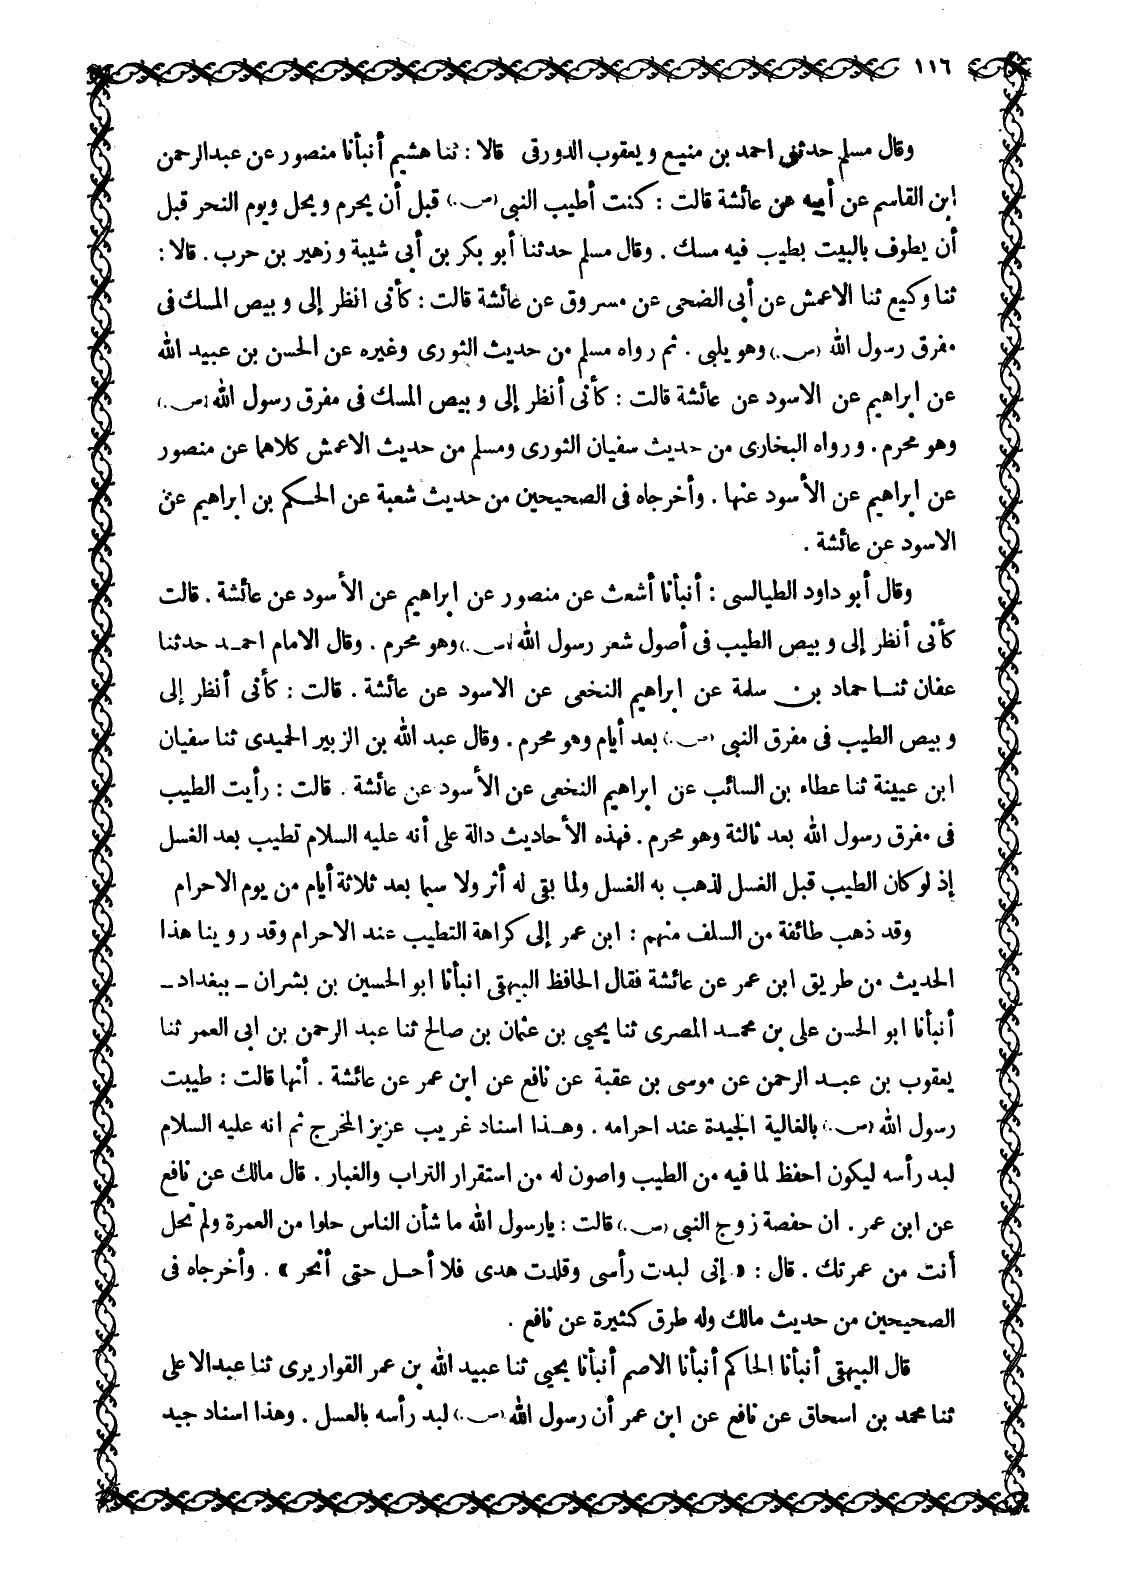 ١١٦
وقال مسلم حدثنى احمد بن منيع ويعقوب الدورقى قالا : ثنا هشيم أنبأنا منصور عن عبدالرحمن
ابن القاسم عن أبيه عن عائشة قالت : كنت أطيب النبى (ص.) قبل أن يحرم ويحل ويوم النحر قبل
أن يطوف بالبيت بطيب فيه مسك . وقال مسلم حدثنا أبو بكر بن أبى شيبة وزهير بن حرب . قالا :
ثنا وكيع ثنا الاعمش عن أبى الضحى عن مسروق عن عائشة قالت : كأنى انظر إلى وبيص المسك فى
مفرق رسول الله (ص.) وهو يلبى . ثم رواه مسلم من حديث الثورى وغيره عن الحسن بن عبيد الله
عن ابراهيم عن الاسود عن عائشة قالت : كأنى أنظر إلى وبيص المسك فى مفرق رسول الله (ص.)
وهو محرم . ورواه البخارى من حديث سفيان الثورى ومسلم من حديث الاعمش كلاهما عن منصور
عن ابراهيم عن الأسود عنها . وأخرجاه فى الصحيحين من حديث شعبة عن الحكم بن ابراهيم عن
الاسود عن عائشة .
وقال أبو داود الطيالسى : أنبأنا أشعث عن منصور عن ابراهيم عن الأسود عن عائشة . قالت
كأنى أنظر إلى وبيص الطيب فى أصول شعر رسول الله (ص.) وهو محرم . وقال الامام احمد حدثنا
عفان ثنا حماد بن سلمة عن ابراهيم النخعى عن الاسود عن عائشة . قالت : كأنى أنظر إلى
وبيص الطيب فى مفرق النبى (ص.) بعد أيام وهو محرم . وقال عبد الله بن الزبير الحميدى ثنا سفيان
ابن عيينة ثنا عطاء بن السائب عن ابراهيم النخعى عن الأسود عن عائشة . قالت : رأيت الطيب
فى مفرق رسول الله بعد ثالثة وهو محرم . فهذه الأحاديث دالة على أنه عليه السلام تطيب بعد الغسل
إذ لو كان الطيب قبل الغسل لذهب به الغسل ولما بقى له أثر ولا سيما بعد ثلاثة أيام من يوم الاحرام
وقد ذهب طائفة من السلف منهم : ابن عمر إلى كراهة التطيب عند الاحرام وقد روينا هذا
الحديث من طريق ابن عمر عن عائشة فقال الحافظ البيهقى انبأنا ابو الحسين بن بشران - ببغداد -
أنبأنا ابو الحسن على بن محمد المصرى ثنا يحيى بن عثمان بن صالح ثنا عبد الرحمن بن ابى العمر ثنا
يعقوب بن عبد الرحمن عن موسى بن عقبة عن نافع عن ابن عمر عن عائشة . أنها قالت : طيبت
رسول الله (ص.) بالغالية الجيدة عند احرامه . وهذا اسناد غريب عزيز المخرج ثم انه عليه السلام
لبد رأسه ليكون احفظ لما فيه من الطيب واصون له من استقرار التراب والغبار . قال مالك عن نافع
عن ابن عمر . ان حفصة زوج النبى (ص.) قالت : يارسول الله ما شأن الناس حلوا من العمرة ولم تحل
أنت من عمرتك . قال : « إنى لبدت رأسى وقلدت هدى فلا أحل حتى أنحر » . وأخرجاه فى
الصحيحين من حديث مالك وله طرق كثيرة عن نافع .
قال البيهقى أنبأنا الحاكم أنبأنا الاصم أنبأنا يحيى ثنا عبيد الله بن عمر القواريرى ثنا عبدالاعلى
ثنا محمد بن اسحاق عن نافع عن ابن عمر أن رسول الله (ص.) لبد رأسه بالعسل . وهذا اسناد جيد